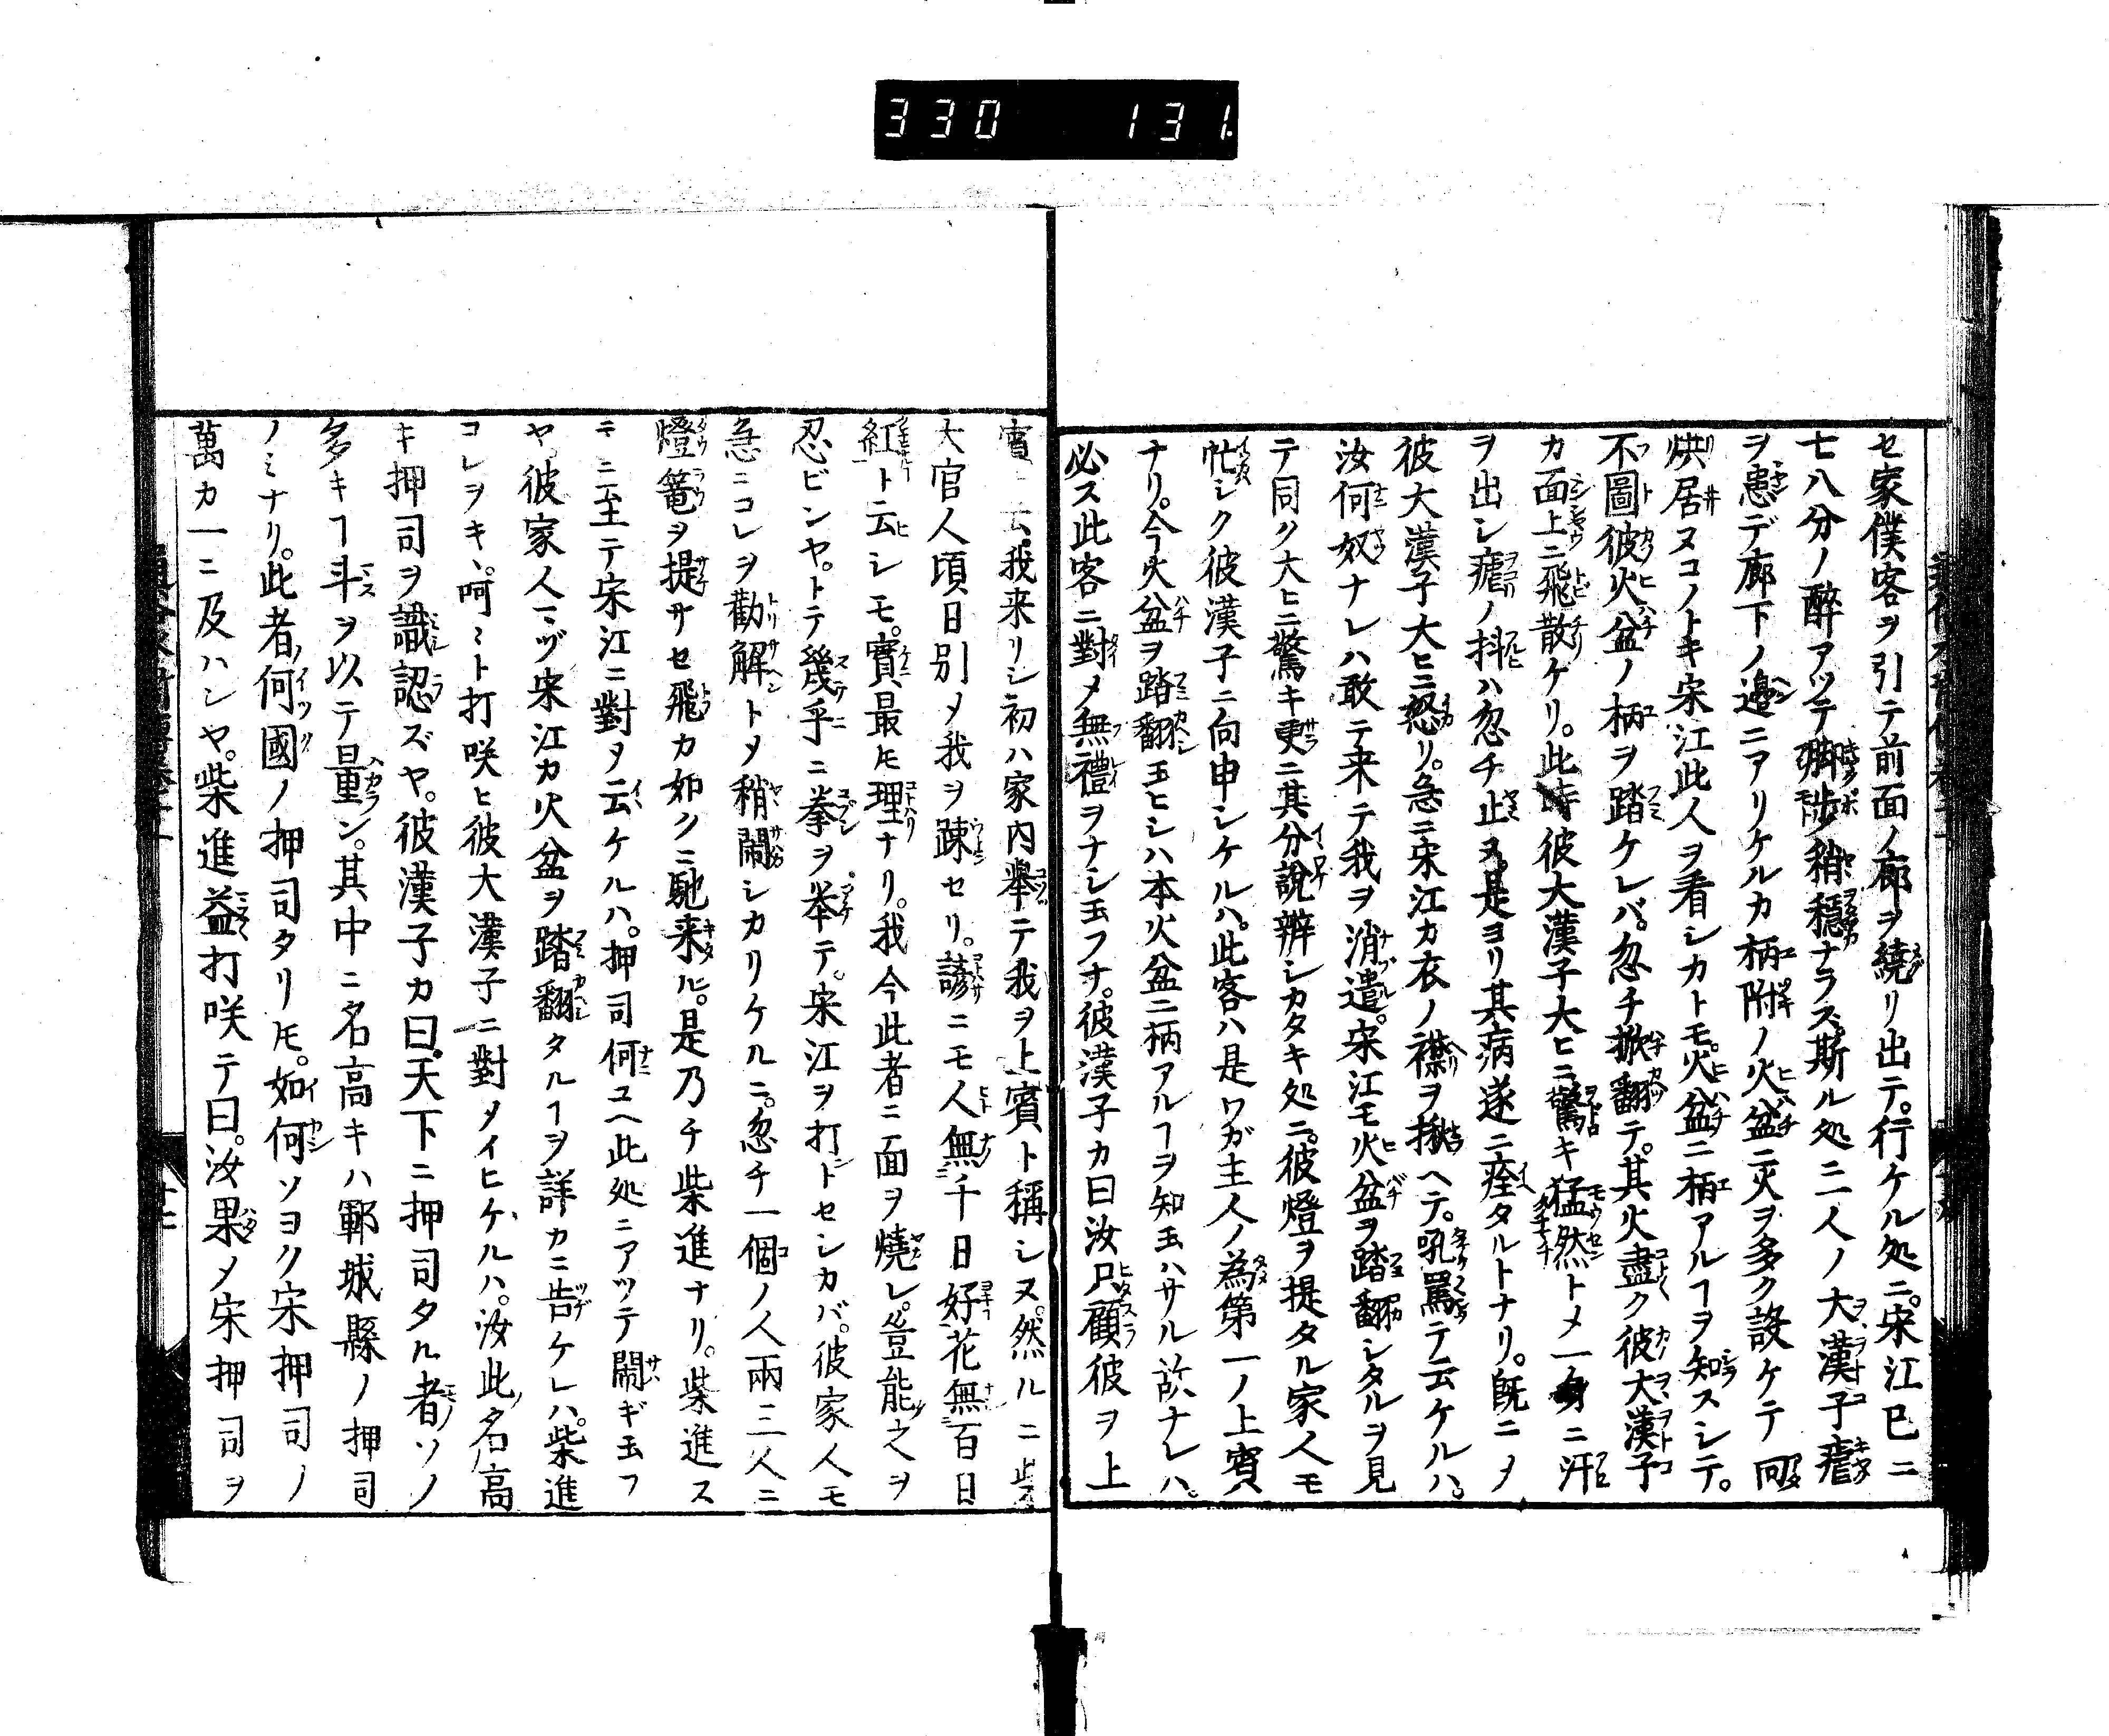 330 131
セ家僕客ヲ引テ前面ノ廊ヲ繞リ出テ。行ケル処ニ。宋江已ニ
七八分ノ醉アツテ脚歩稍穩ナラス。斯ル処ニ一人ノ大漢子瘧
ヲ患デ廊下ノ邉ニアリケルカ柄附ノ火盆ニ火ヲ多ク設ケテ向
烘居ヌコノトキ宋江此人ヲ看シカトモ。火盆ニ柄アルヿヲ知スシテ。
不圖彼火盆ノ柄ヲ踏ケレバ。忽チ掀翻テ。其火盡ク彼大漢子
カ面上ニ飛散ケリ。此時彼大漢子大ヒニ驚キ猛然トメ一身ニ汗
ヲ出シ瘧ノ抖ハ忽チ止ヌ。是ヨリ其病遂ニ痊タルトナリ。既ニメ
彼大漢子大ヒニ怒リ。急ニ宋江カ衣ノ襟ヲ揪ヘテ。吼罵テ云ケルハ。
汝何奴ナレハ敢テ来テ我ヲ消遣。宋江モ火盆ヲ踏翻シタルヲ見
テ同ク大ヒニ驚キ更ニ其分說辨シカタキ処ニ。彼燈ヲ提タル家人モ
忙シク彼漢子ニ向申シケルハ。此客ハ是ワガ主人ノ為第一ノ上賓
ナリ。今火盆ヲ踏翻玉ヒシハ本火盆ニ柄アルヿヲ知玉ハサル故ナレハ。
必ス此客ニ對メ無禮ヲナシ玉フナ。彼漢子カ曰汝只顧彼ヲ上
賓ト云。我来リシ初ハ家内舉テ我ヲ上賓ト稱シヌ。然ルニ柴
大官人頃日別メ我ヲ踈セリ。諺ニモ人無千日好花無百日
紅ト云シモ。實最ヒ理ナリ。我今此者ニ面ヲ燒レ。豈能之ヲ
忍ビンヤ。トテ幾乎ニ拳ヲ举テ。宋江ヲ打ントセシカバ。彼家人モ
急ニコレヲ勸解トメ稍閙シカリケルニ。忽チ一個ノ人兩三人ニ
燈篭ヲ提サセ飛カ如クニ馳来ル。是乃チ柴進ナリ。柴進ス
キニ至テ宋江ニ對ヲ云ケルハ。押司何ユヘ此処ニアツテ閙ギ玉フ
ヤ。彼家人マヅ宋江カ火盆ヲ踏翻タルヿヲ詳カニ告ケレハ。柴進
コレヲキヽ。呵ミト打咲ヒ彼大漢子ニ對メイヒケルハ。汝此名高
キ押司ヲ識認ズヤ。彼漢子カ曰天下ニ押司タル者ソノ
多キヿ斗ヲ以テ量ン。其中ニ名高キハ鄆城縣ノ押司
ノミナリ。此者何國ノ押司タリ𪜈。如何ソヨク宋押司ノ
萬カ一ニ及ハシヤ。柴進益打咲テ曰。汝果メ宋押司ヲ